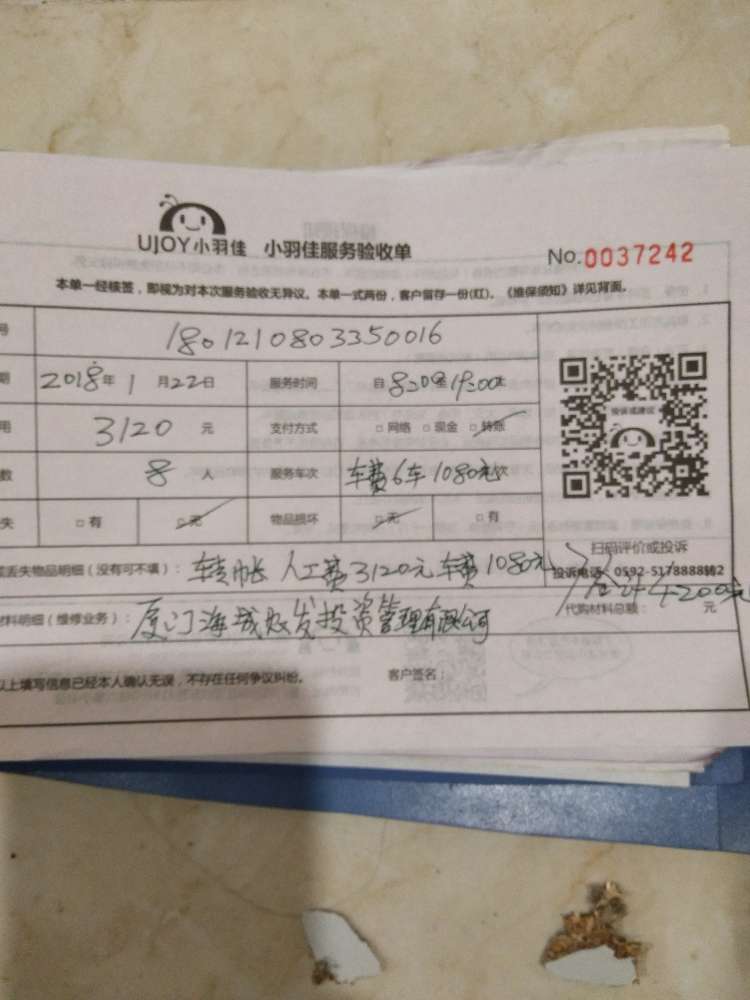 UJOY小羽佳 小羽佳服务验收单 No.0037242
本单一经核签，即视为对本次服务验收无异议。本单一式两份，客户留存一份(红)。《维保须知》详见背面。
号 1801210803350016
期 2018年 1 月22日 服务时间 自8:00至19:00止
用 3120 元 支付方式 □网络 □现金 □转账
数 8 人 服务车次 车费6车1080元 次
失 □有 □无 物品损坏 □无 □有
投诉或建议
扫码评价或投诉
丢失物品明细（没有可不填）： 转帐 人工费3120元 车费1080元 投诉电话 0592-5178888转2
材料明细（维修业务）： 厦门海城 发投资管理有限公司 代购材料总额： 4200元 元
以上填写信息已经本人确认无误，不存在任何争议纠纷。 客户签名：